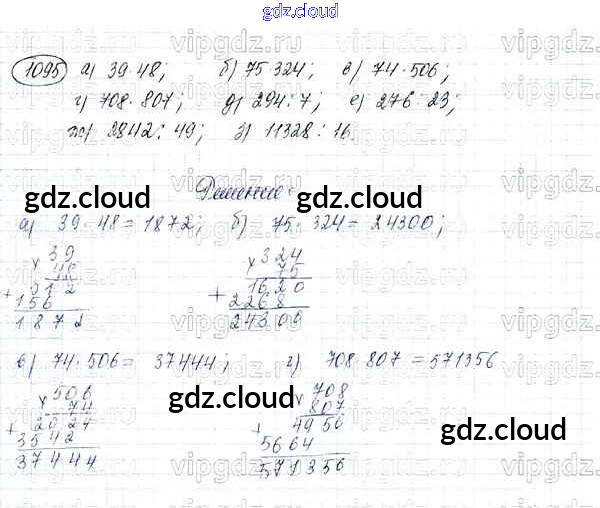 gdz.cloud
1095 а) 39·48; б) 75·324; в) 74·506;
г) 708·807; д) 294:7; е) 276:23;
ж) 2842:49; з) 11328:16.
Решение:
а) 39·48=1872; б) 75·324=24300;
×39 ×324
48 75
312 1620
+156 +2268
1872 24300
в) 74·506= 37444; г) 708·807=571356
×506 ×708
74 807
2024 4956
+3542 +5664
37444 571356
gdz.cloud
gdz.cloud
gdz.cloud
gdz.cloud